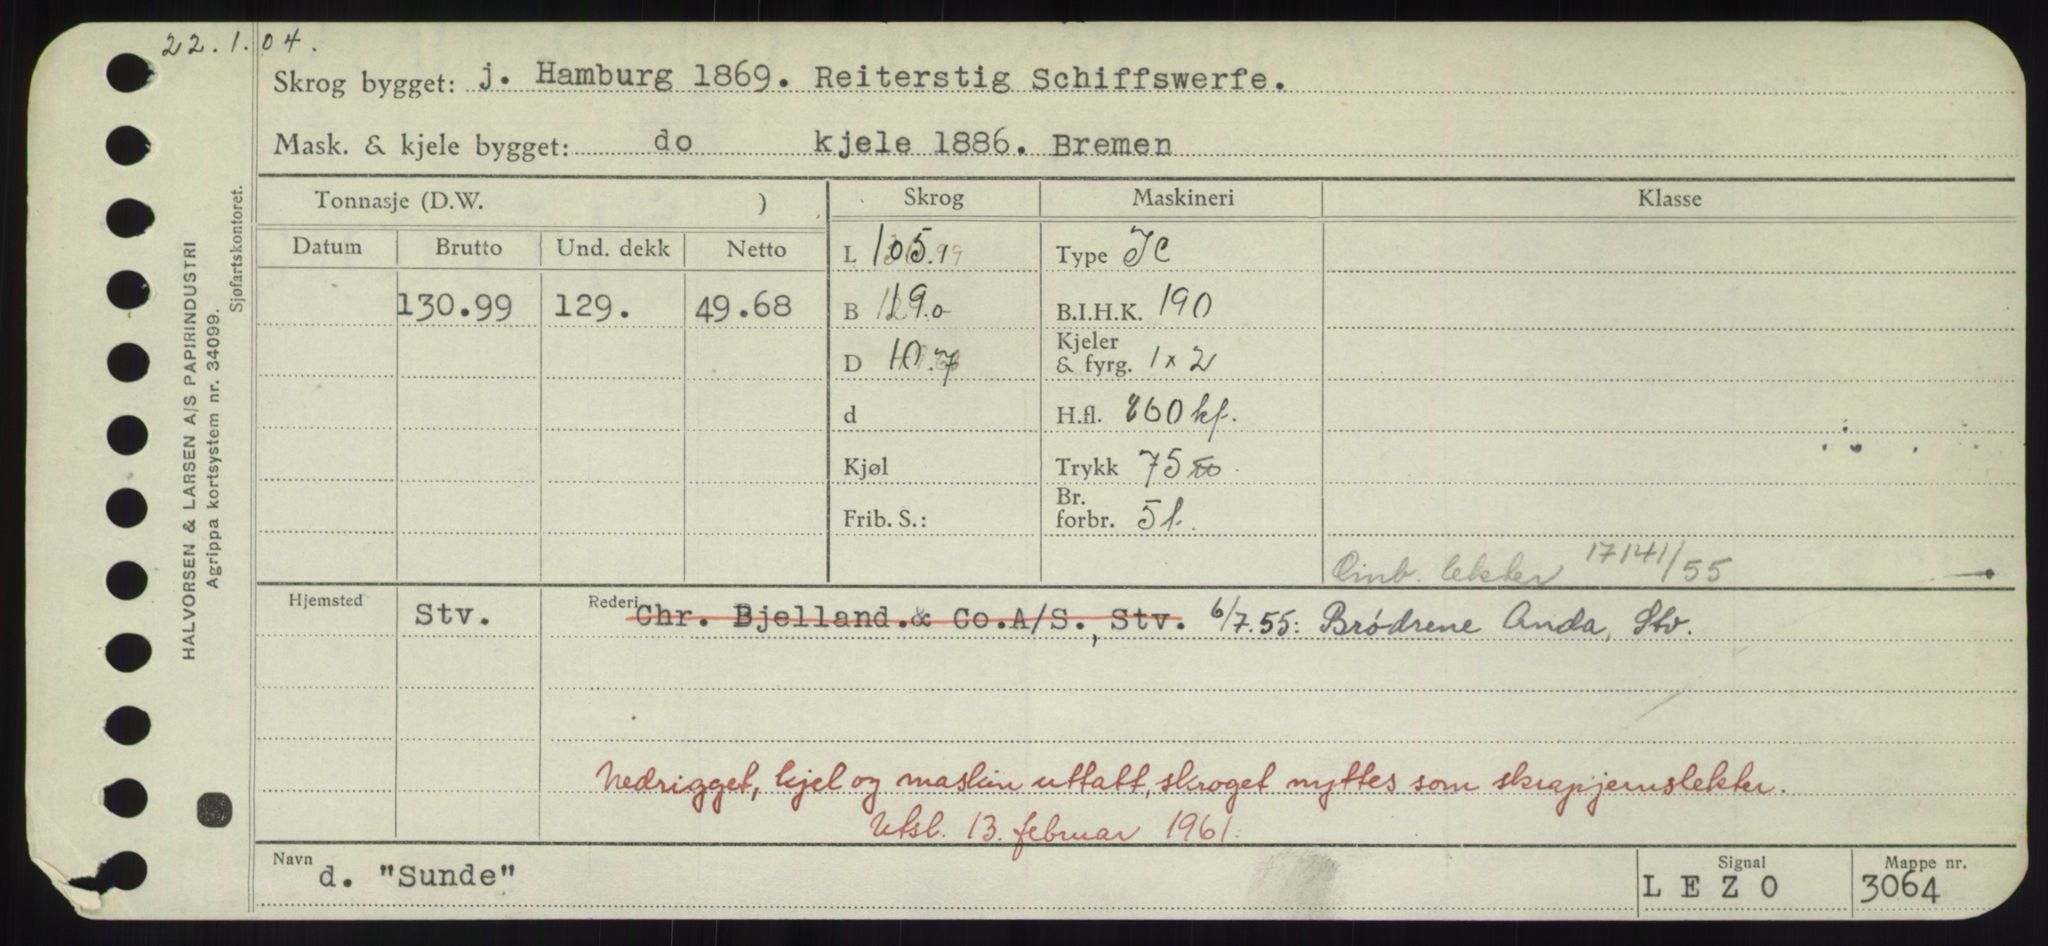 22.1.04.
Skrog bygget: j. Hamburg 1869. Reiterstig Schiffswerfe.
Mask. & kjele bygget: do kjele 1886. Bremen
Tonnasje (D.W. ) Skrog Maskineri Klasse
Datum Brutto Und. dekk Netto
L 105.9 Type
130.99 129. 49.68
B 19.0 B.I.H.K. 190
D 10.7 Kjeler & fyrg. 1 x 2
d H.fl.
Kjøl Trykk 75
Frib. S.: Br. forbr. 5 t.
Omb. lekter 17141/55
Hjemsted Stv. Rederi Chr. Bjelland.& Co.A/S., Stv. 6/7.55: Brødrene Anda, Stv.
Nedrigget, kjel og maskin uttatt, skroget nyttes som skrapjernslekter.
Utsl. 13. februar 1961.
Navn d. "Sunde" Signal L E Z O Mappe nr. 3064
HALVORSEN & LARSEN A/S PAPIRINDUSTRI
Agrippa kortsystem nr. 34099.
Sjøfartskontoret.